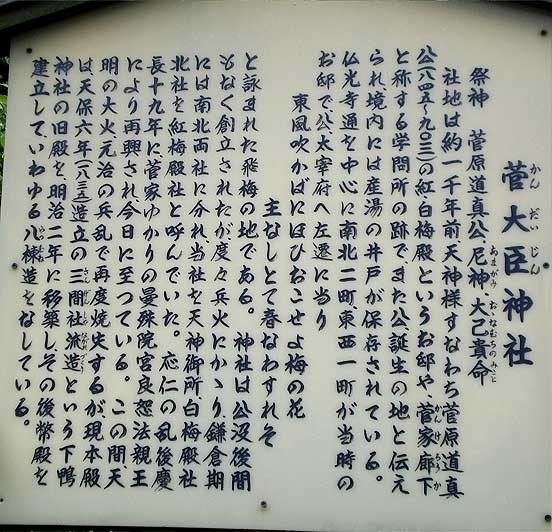 菅大臣神社
かんだいじん
祭神　菅原道真公、尼神、大己貴命
あまがみ　おゝなむちのみこと
社地は約一千年前天神様すなわち菅原道真
公(八四五〜九〇三)の紅白梅殿というお邸や、菅家廊下
かんけろうか
と称する学問所の跡で、また公誕生の地と伝え
られ境内には産湯の井戸が保存されている。
仏光寺通を中心に南北二町、東西一町が当時の
お邸で、公、太宰府へ左遷に当り
東風吹かばにほひおこせよ梅の花
主なしとて春なわすれそ
と詠まれた飛梅の地である。　神社は公没後間
もなく創立されたが度々兵火にかゝり、鎌倉期
には南北両社に分れ、当社を天神御所、白梅殿社
北社を紅梅殿社と呼んでいた。　応仁の乱後慶
長十九年に、菅家ゆかりの曼殊院宮良恕法親王
により再興され、今日に至つている。　この間天
明の大火元治の兵乱で再度焼失するが、現本殿
は、天保六年(一八三五)造立の三間社流造という下鴨
さんけんしゃながれづくり
神社の旧殿を、明治二年に移築し、その後幣殿を
建立していわゆる八棟造をなしている。